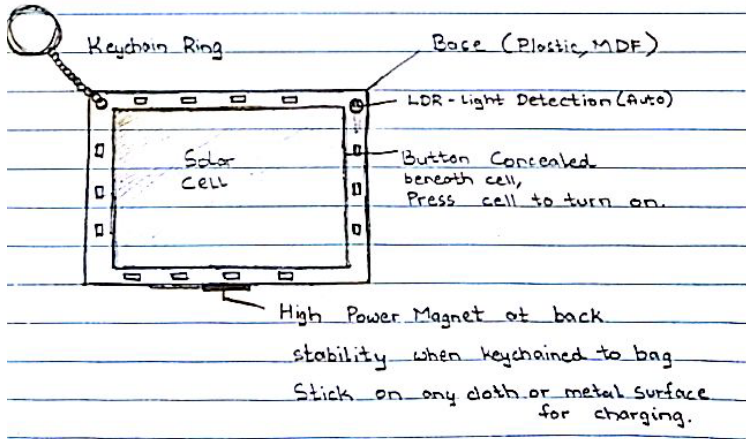 Keychain Ring
Base (Plastic, MDF)
LDR - Light Detection (Auto)
Solar
CELL
Button Concealed
beneath cell,
Press cell to turn on.
High Power Magnet at back
stability when keychained to bag
Stick on any cloth or metal surface
for charging.